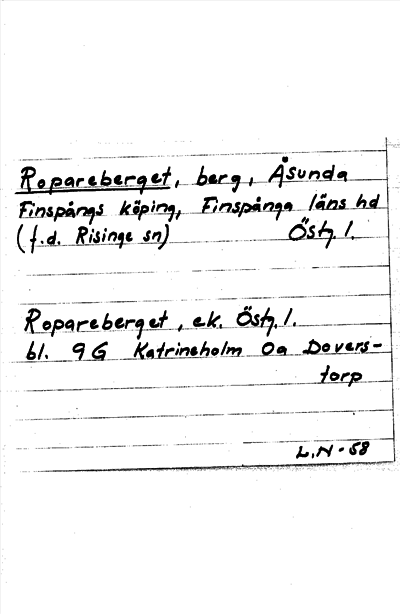 Ropareberget, berg, Åsunda
Finspångs köping, Finspånga läns hd
(f.d. Risinge sn) Östg. l.
Ropareberget, ek. Östg. l.
bl. 9G Katrineholm 0a Dovers-
torp
L.N-58